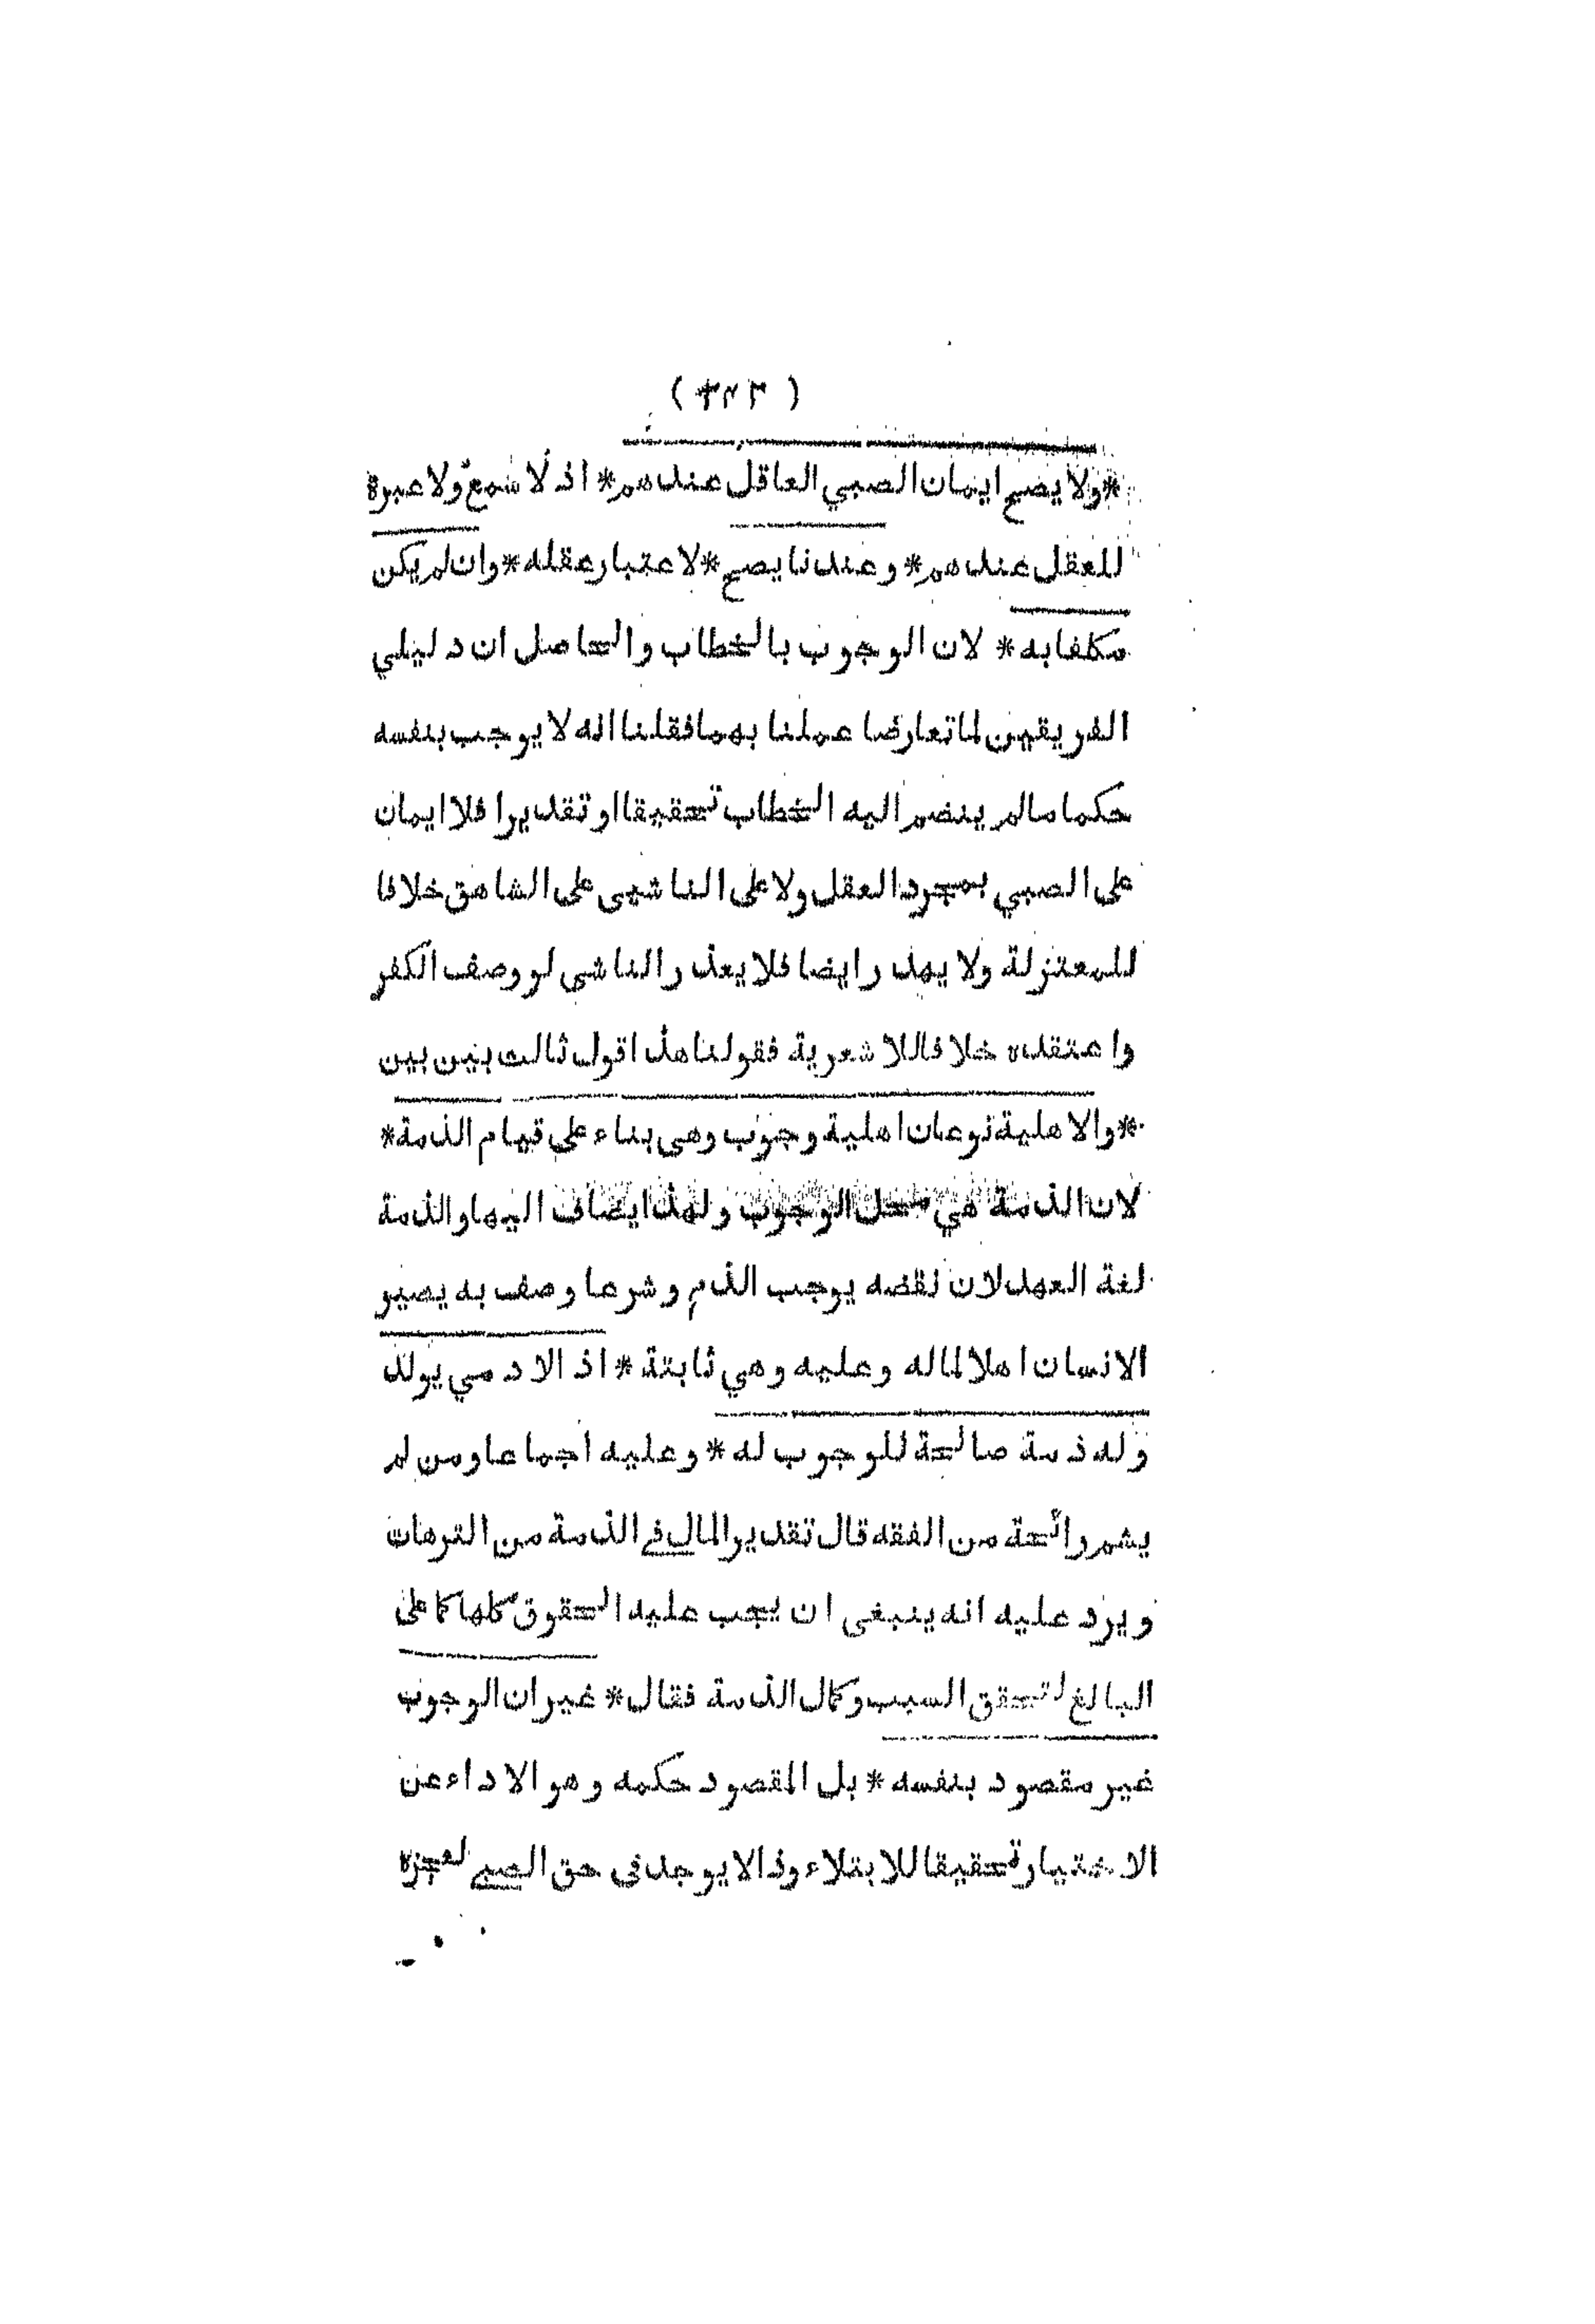 ( ٣٢٣ )
*ولا يصح ايمان الصبي العاقل عندهم* اذ لا سمع ولا عبرة
للعقل عندهم* وعندنا يصح* لاعتبار عقله* وان لم يكن
مكلفا به* لان الوجوب بالخطاب والحاصل ان دليلي
الفريقين لما تعارضا عملنا بهما فقلنا انه لا يوجب بنفسه
حكما ما لم ينضم اليه الخطاب تحقيقا او تقديرا فلا ايمان
على الصبي بمجرد العقل ولا على الناشى على الشاهق خلافا
للمعتزلة ولا يهدر ايضا فلا يعذر الناشى لو وصف الكفر
واعتقده خلافا للاشعرية فقولنا هذا قول ثالث بين بين
*والاهلية نوعان اهلية وجوب وهى بناء على قيام الذمة*
لان الذمة هي محل الوجوب ولهذا يضاف اليها والذمة
لغة العهد لان نقضه يوجب الذم وشرعا وصف به يصير
الانسان اهلا لما له وعليه وهي ثابتة* اذ الادمي يولد
وله ذمة صالحة للوجوب له* وعليه اجماعا ومن لم
يشم رائحة من الفقه قال تقدير المال في الذمة من الترهات
ويرد عليه انه ينبغى ان يجب عليه الحقوق كلها كما على
البالغ لتحقق السبب وكمال الذمة فقال* غير ان الوجوب
غير مقصود بنفسه* بل المقصود حكمه وهو الاداء عن
الاختيار تحقيقا للابتلاء وذا لا يوجد فى حق الصبي لعجزه